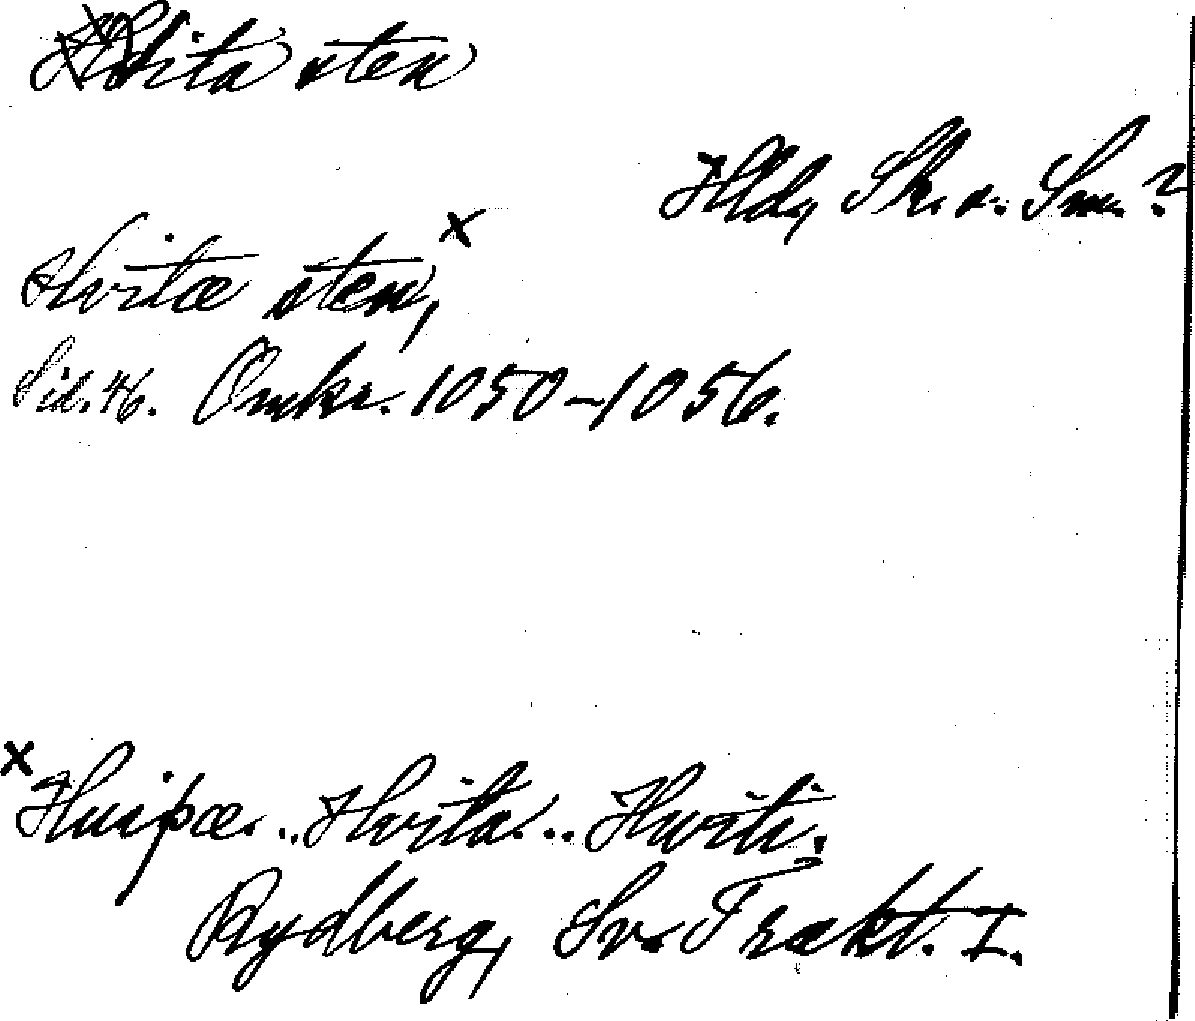 Hvita sten
Hld, Sk. o. Sm.?
Hvitæ sten, x
Sid. 46. Omkr. 1050-1056.
x Huiþæ-, Hvita-.. Hwiti-;
Rydberg, Sv. Trakt. I.